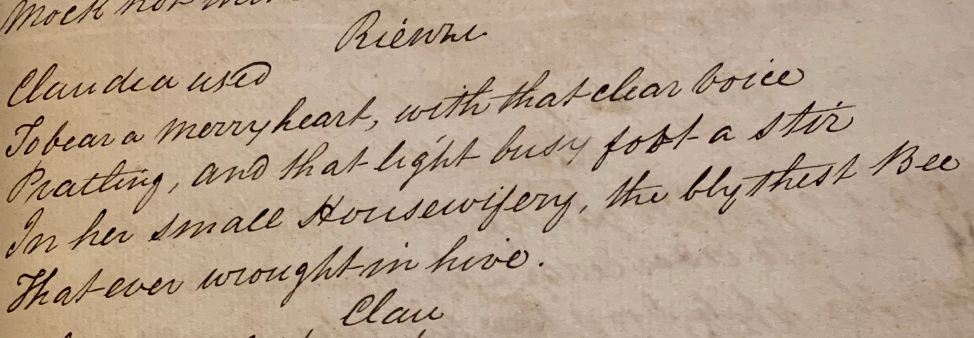 Mock not
Rienzi
Claudia used
To bear a merry heart, with that clear voice
Pratling, and that light busy foot a stir
In her small Housewifery, the blythest Bee
That ever wrought in hive.
Clau